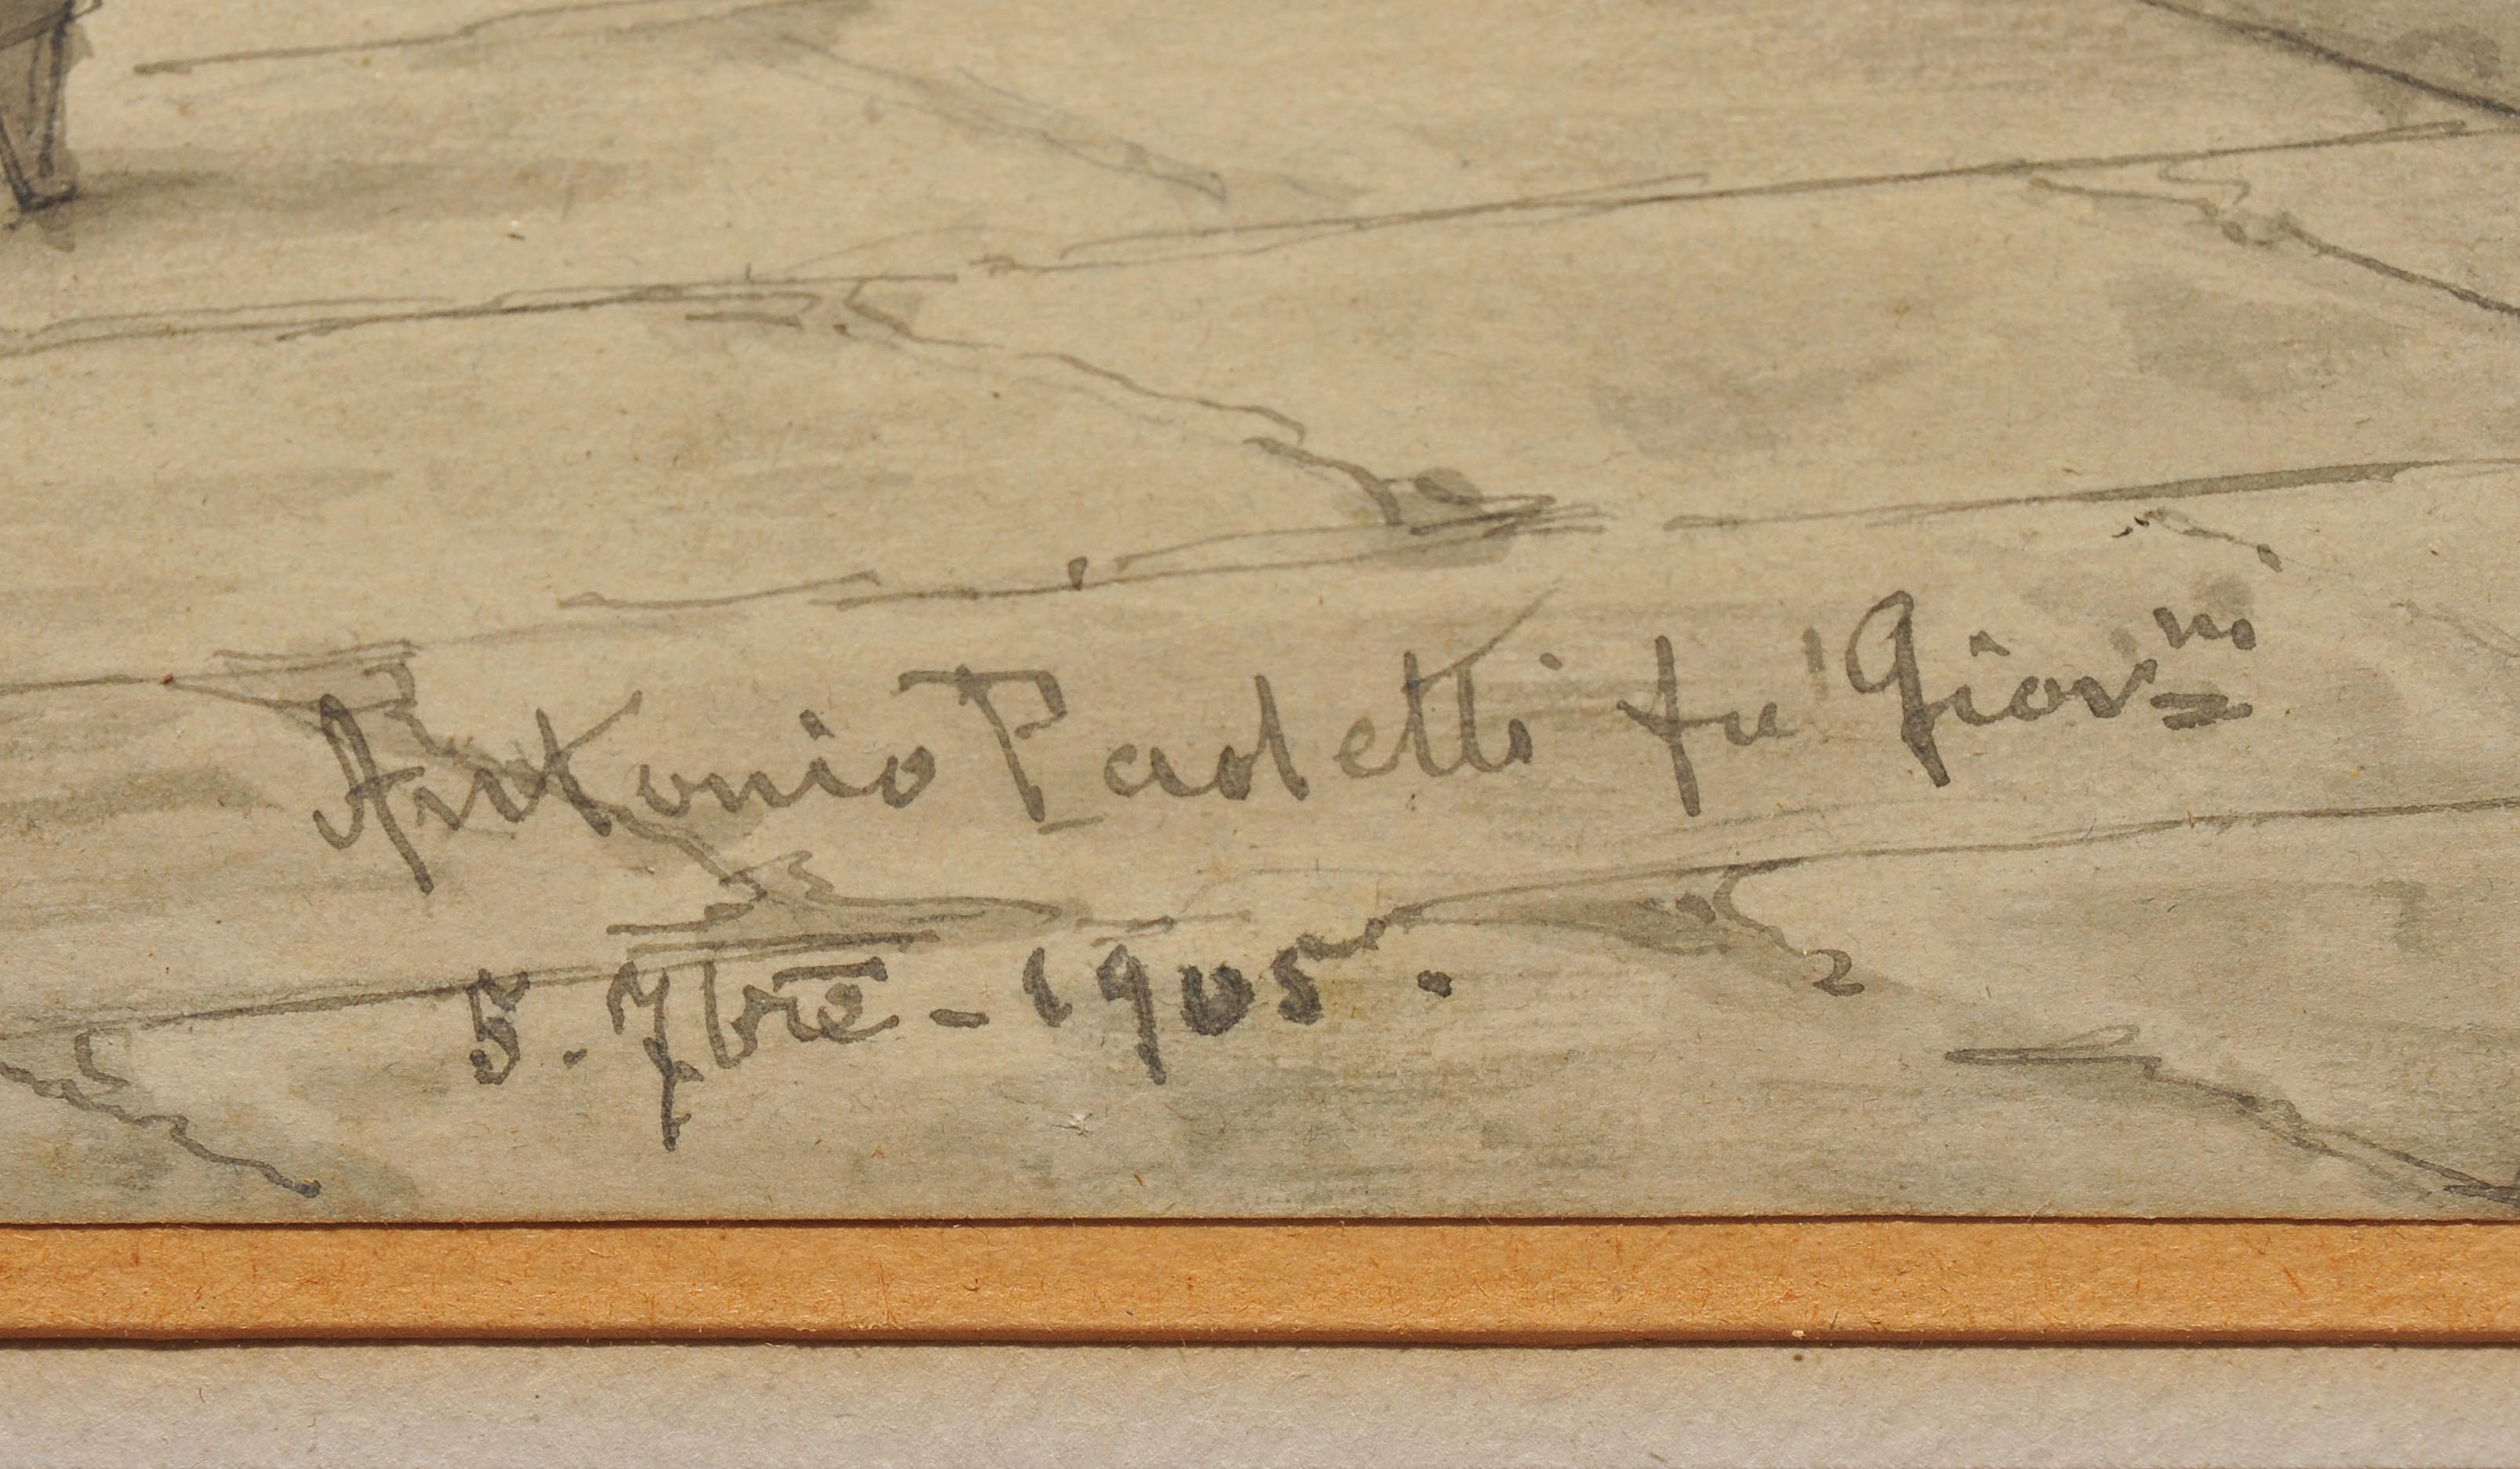 Antonio Padetti fu Giovni
5. 7bre - 1905.